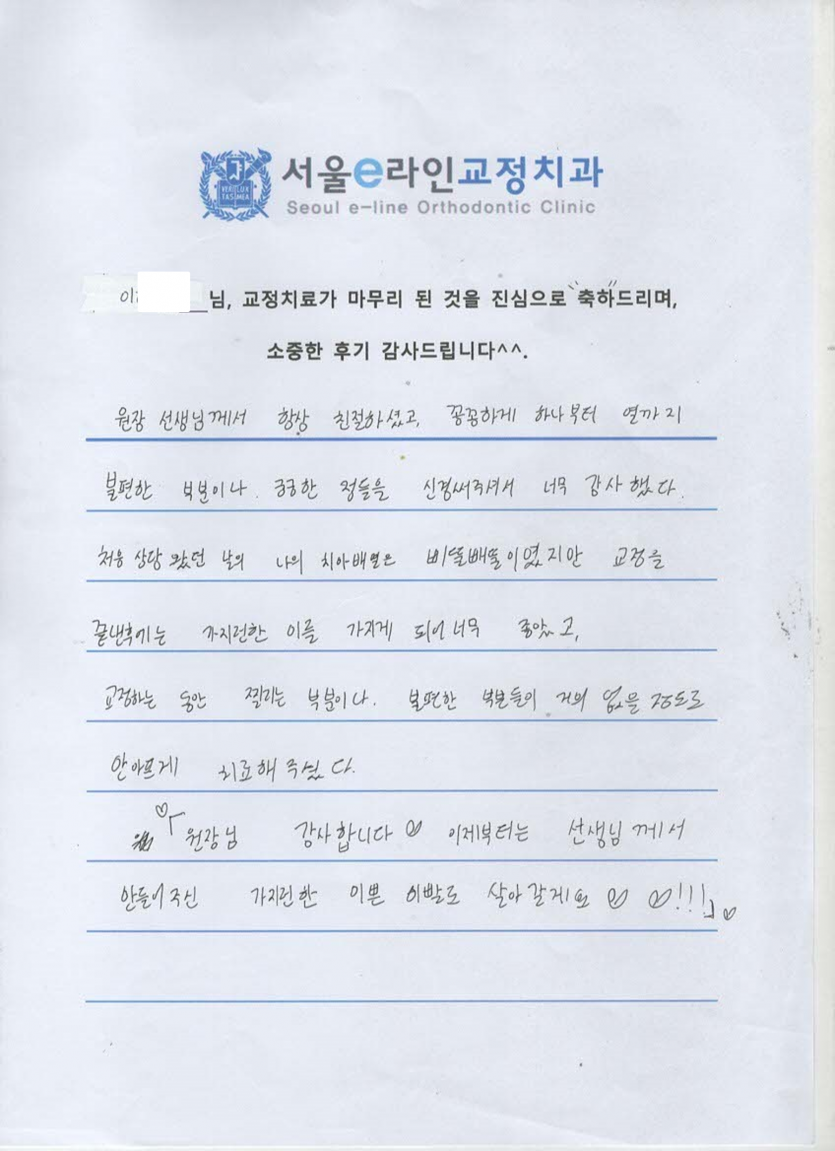 VERI LUX TAS MEA
서울e라인교정치과
Seoul e-line Orthodontic Clinic
이 님, 교정치료가 마무리 된 것을 진심으로 "축하"드리며,
소중한 후기 감사드립니다^^.
원장 선생님께서 항상 친절하셨고, 꼼꼼하게 하나부터 열까지
불편한 부분이나 궁금한 점들을 신경써주셔서 너무 감사했다.
처음 상담 왔던 날의 나의 치아배열은 삐뚤빼뚤이였지만 교정을
끝낸후에는 가지런한 이를 가지게 되어 너무 좋았고,
교정하는 동안 찔리는 부분이나. 불편한 부분들이 거의 없을 정도로
안아프게 치료해 주셨다.
♡「원장님 감사합니다♡ 이제부터는 선생님께서
만들어주신 가지런한 이쁜 이빨로 살아갈게요♡♡!!!」♡